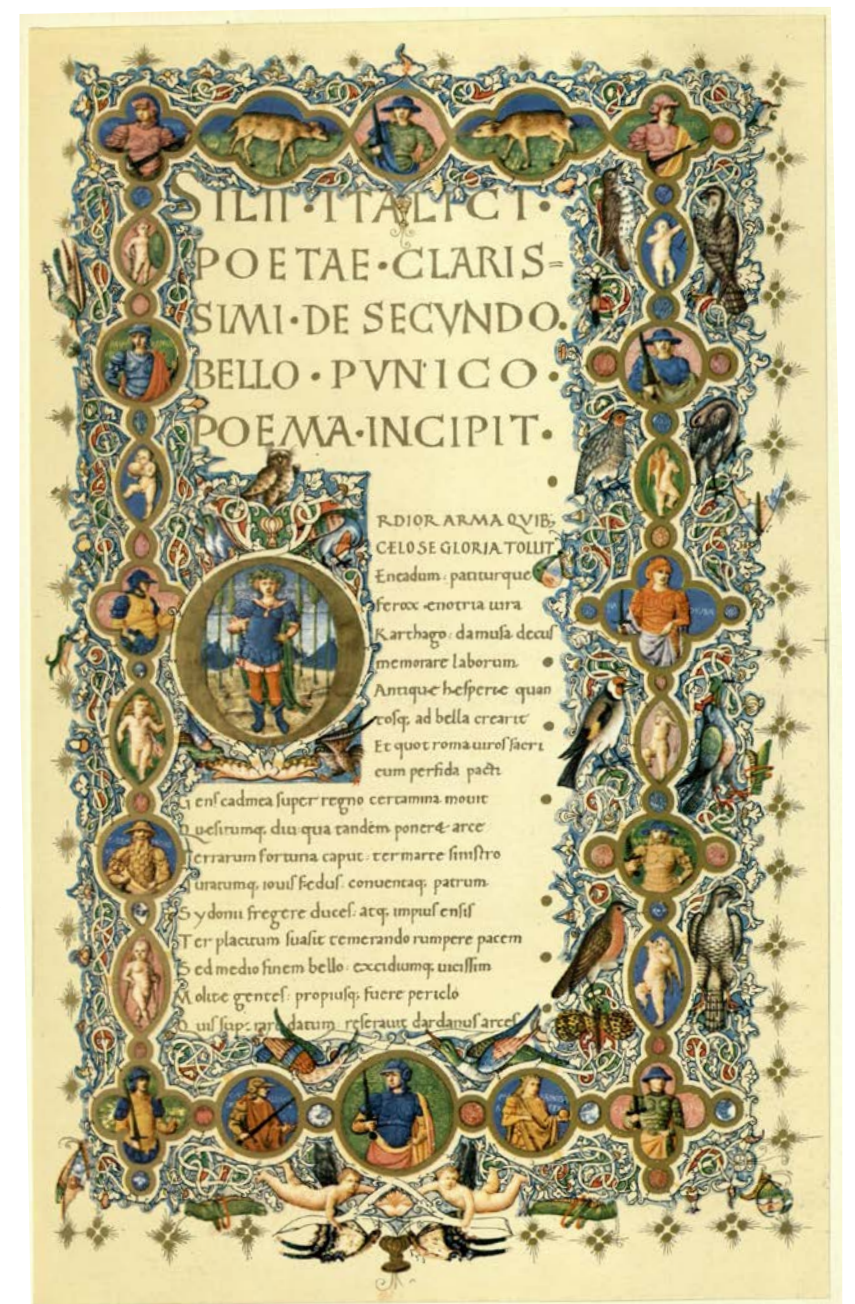 SILII·ITALICI·
POETAE·CLARIS=
SIMI·DE SECVNDO.
BELLO·PVNICO·
POEMA·INCIPIT·
ORDIOR ARMA QVIB;
CELO SE GLORIA TOLLIT
Eneadum: patiturque
ferox enotria iura
Karthago: da musa decus
memorare laborum
Antique hesperie quan
tosq; ad bella crearit
Et quot roma uiros sacri
cum perfida pacti
Gens cadmea super regno certamina mouit
Quesitumq; diu qua tandem poneret arce
Terrarum fortuna caput: ter marte sinistro
Iuratumq; iouis fedus: conuentaq; patrum
Sydonii fregere duces: atq; impius ensis
Ter placitum suasit temerando rumpere pacem
Sed medio finem bello: excidiumq; uicissim
Molite gentes: propiusq; fuere periclo
Quis superare datum: reserauit dardanus arces